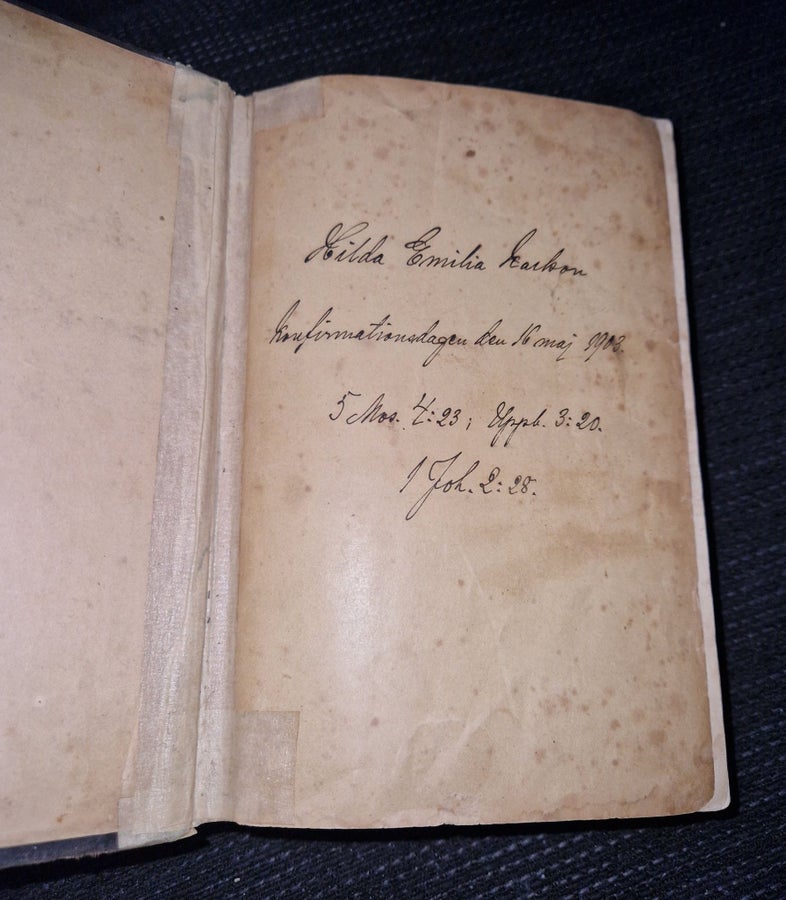 Hilda Emilia Karlson
Konfirmationsdagen den 16 maj 1903.
5 Mos. 4:23; Uppb. 3:20.
1 Joh. 2:28.